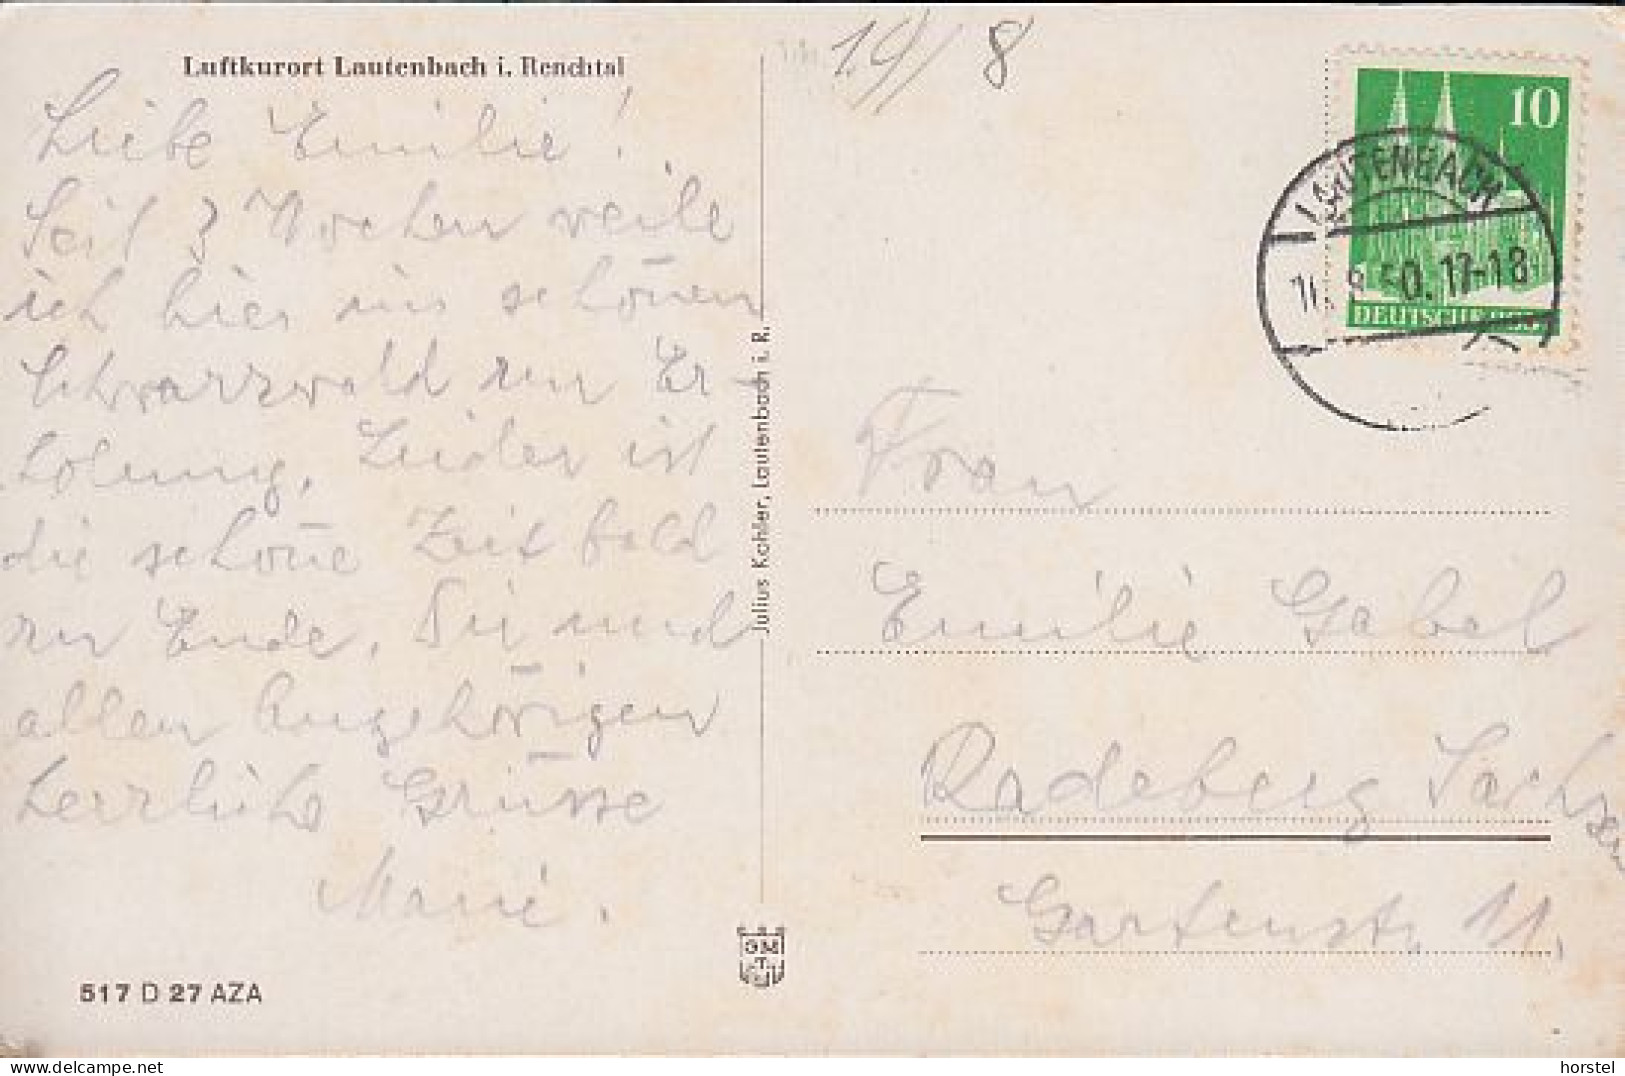 Luftkurort Lautenbach i. Renchtal
Liebe Emilie!
Seit 3 Wochen weile
ich hier im schönen
Schwarzwald zur Er-
holung, Leider ist
die schöne Zeit bald
zu Ende. Dir und
allen Angehörigen
herzliche Grüsse
Marie.
517 D 27 AZA
Julius Kohler, Lautenbach i. R.
19/8
10
DEUTSCHE POST
LAUTENBACH
8.50.17-18
Frau
Emilie Gabel
Radeberg Sachsen
Gartenstr. 11.
delcampe.net
horstel